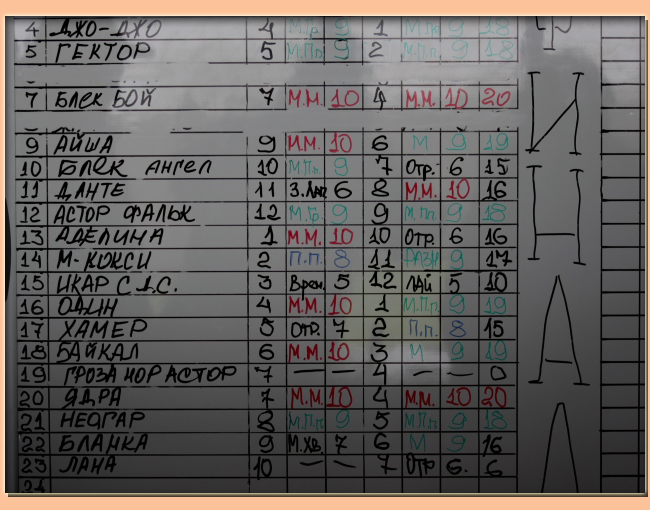 4 ДЖО-ДЖО 4 М.Пр. 9 1 М.Пп. 9 18
5 ГЕКТОР 5 М.Пр. 9 2 М.Пп. 9 18
7 БЛЕК БОЙ 7 М.М. 10 4 М.М. 10 20
9 АЙША 9 М.М. 10 6 М 9 19
10 БЛЕК АНГЕЛ 10 М.Пп. 9 7 Отр. 6 15
11 ДАНТЕ 11 6 8 М.М. 10 16
12 АСТОР ФАЛЬК 12 9 9 М.Пп. 9 18
13 АДЕЛИНА 1 М.М. 10 10 Отр. 6 16
14 М-КОКСИ 2 П.П. 8 11 9 17
15 ИКАР С Д.С. 3 5 12 ЛАЙ 5 10
16 ОДИН 4 М.М. 10 1 М.Пр. 9 19
17 ХАМЕР 5 Отр. 7 2 П.п. 8 15
18 БАЙКАЛ 6 М.М. 10 3 М 9 19
19 ГРОЗА НОР АСТОР 7 — — 4 — — 0
20 ЯДРА 7 М.М. 10 4 М.М. 10 20
21 НЕОГАР 8 М.Пп. 9 5 М.Пп. 9 18
22 БЛАНКА 9 М.ХВ. 7 6 М 9 16
23 ЛАНА 10 — — 7 Отр 6. 6
И
Н
А
Л